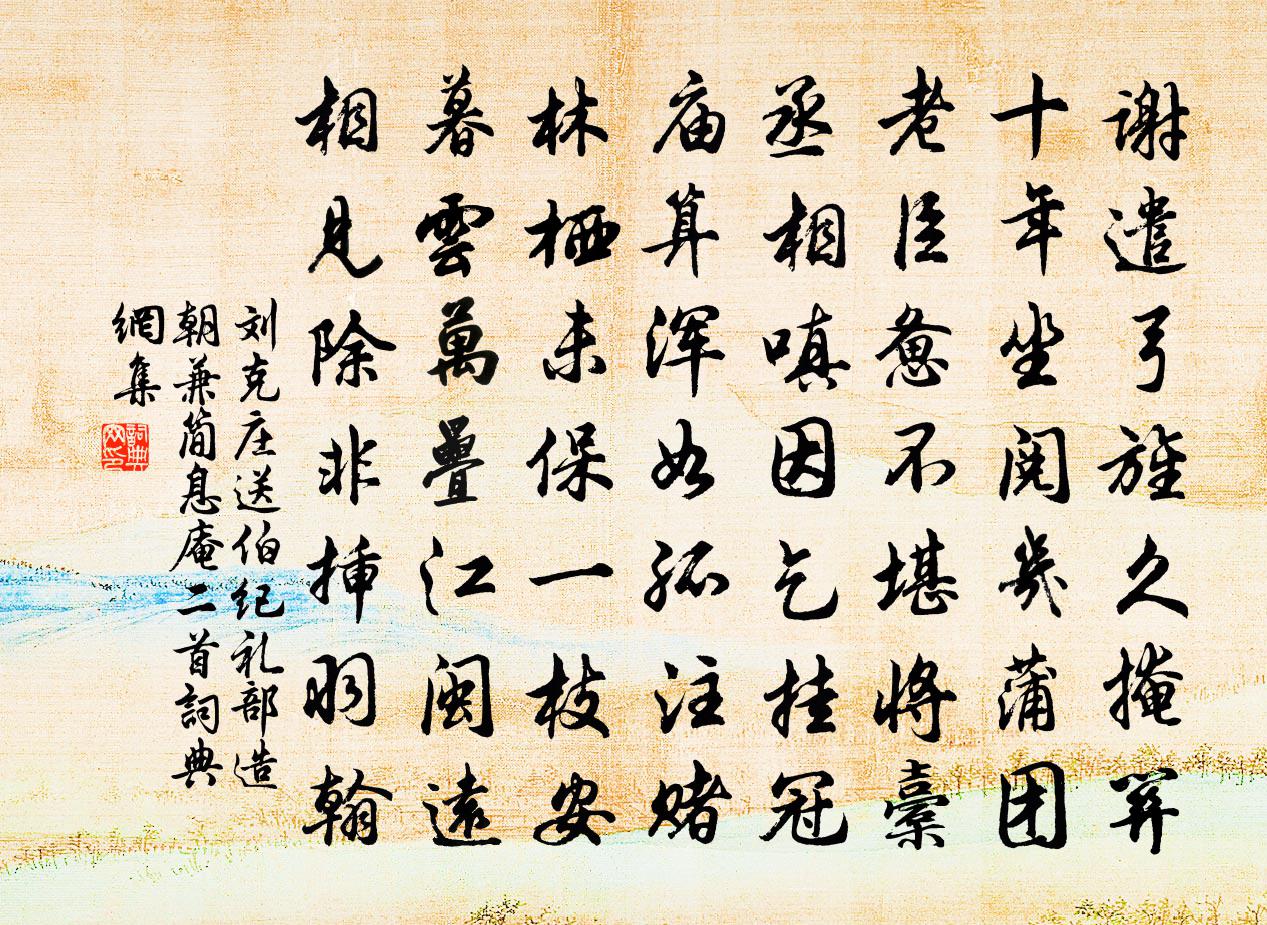 谢遣弓旌久掩关
十年坐阅幾蒲团
老臣惫不堪将橐
丞相嗔因乞挂冠
庙算浑如孤注赌
林栖未保一枝安
暮雲萬疊江闽遠
相见除非插羽翰
刘克庄送伯纪礼部造
朝兼简息庵二首詞典
網集
詞典
網印